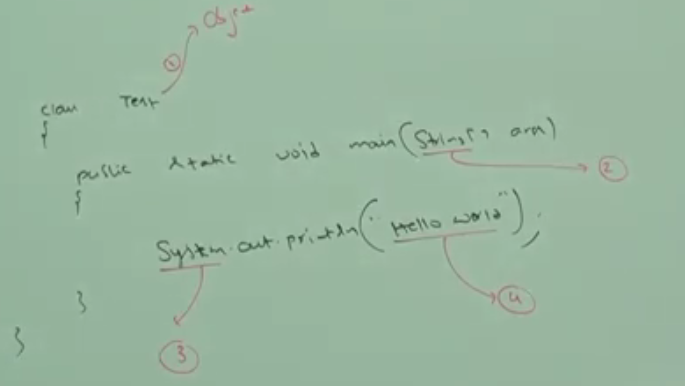 Object
1
class Test
{
public static void main(String[] args)
2
{
System.out.println("Hello world");
4
}
3
}